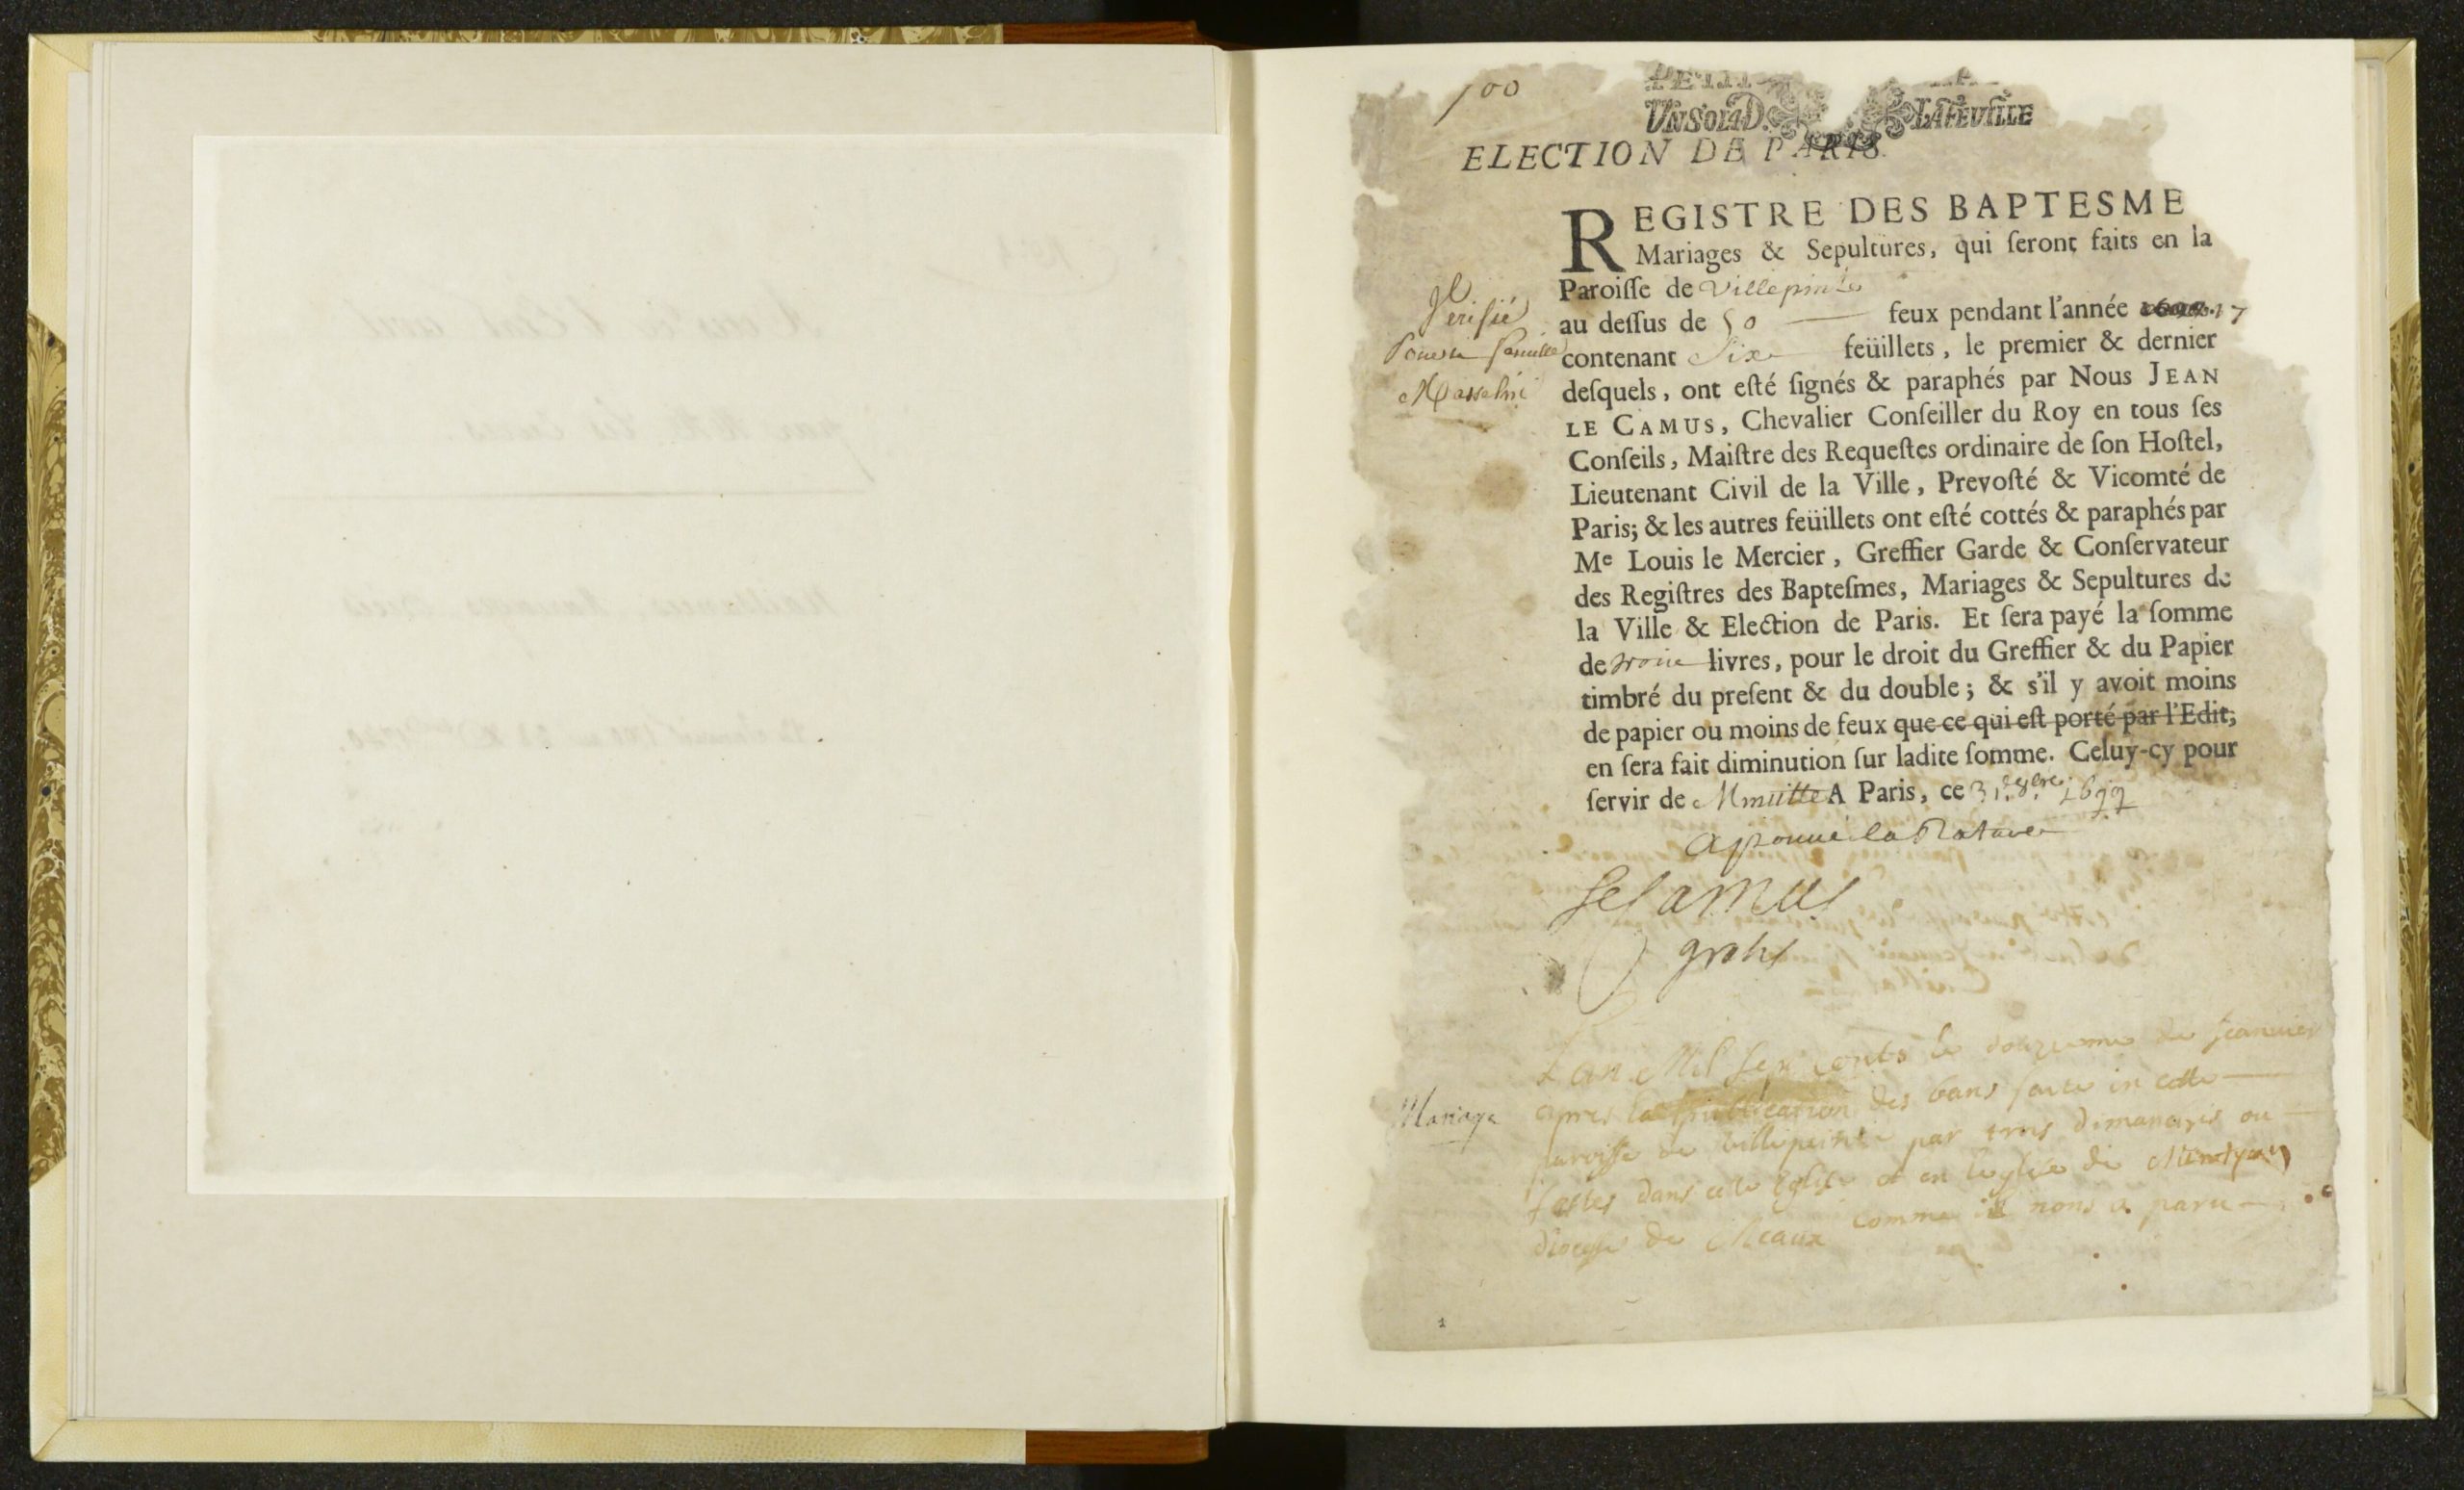 100
PETIT
UNSOL4D. LAFEUILLE
ELECTION DE PARIS.
REGISTRE DES BAPTESME
Mariages & Sepultures, qui ſeront faits en la
Paroiſſe de Villepinte
au deſſus de 50 feux pendant l'année 17
contenant Six feüillets, le premier & dernier
deſquels, ont eſté ſignés & paraphés par Nous JEAN
LE CAMUS, Chevalier Conſeiller du Roy en tous ſes
Conſeils, Maiſtre des Requeſtes ordinaire de ſon Hoſtel,
Lieutenant Civil de la Ville, Prevoſté & Vicomté de
Paris; & les autres feüillets ont eſté cottés & paraphés par
Me Louis le Mercier, Greffier Garde & Conſervateur
des Regiſtres des Bapteſmes, Mariages & Sepultures de
la Ville & Election de Paris. Et ſera payé la ſomme
de livres, pour le droit du Greffier & du Papier
timbré du preſent & du double; & s'il y avoit moins
de papier ou moins de feux que ce qui eſt porté par l'Edit;
en ſera fait diminution ſur ladite ſomme. Celuy-cy pour
ſervir de Minutte A Paris, ce 31.e 1699
aprouué la Rature
Le Camus
gratis
Verifié
Mariage
L'an Mil Sept cents le douzieme de Jeanuier
apres la publication des bans faite en cette
paroisse de villepeinte par trois dimanches ou
festes dans cette Eglise et en leglise de
diocesse de Meaux comme il nous a paru
1